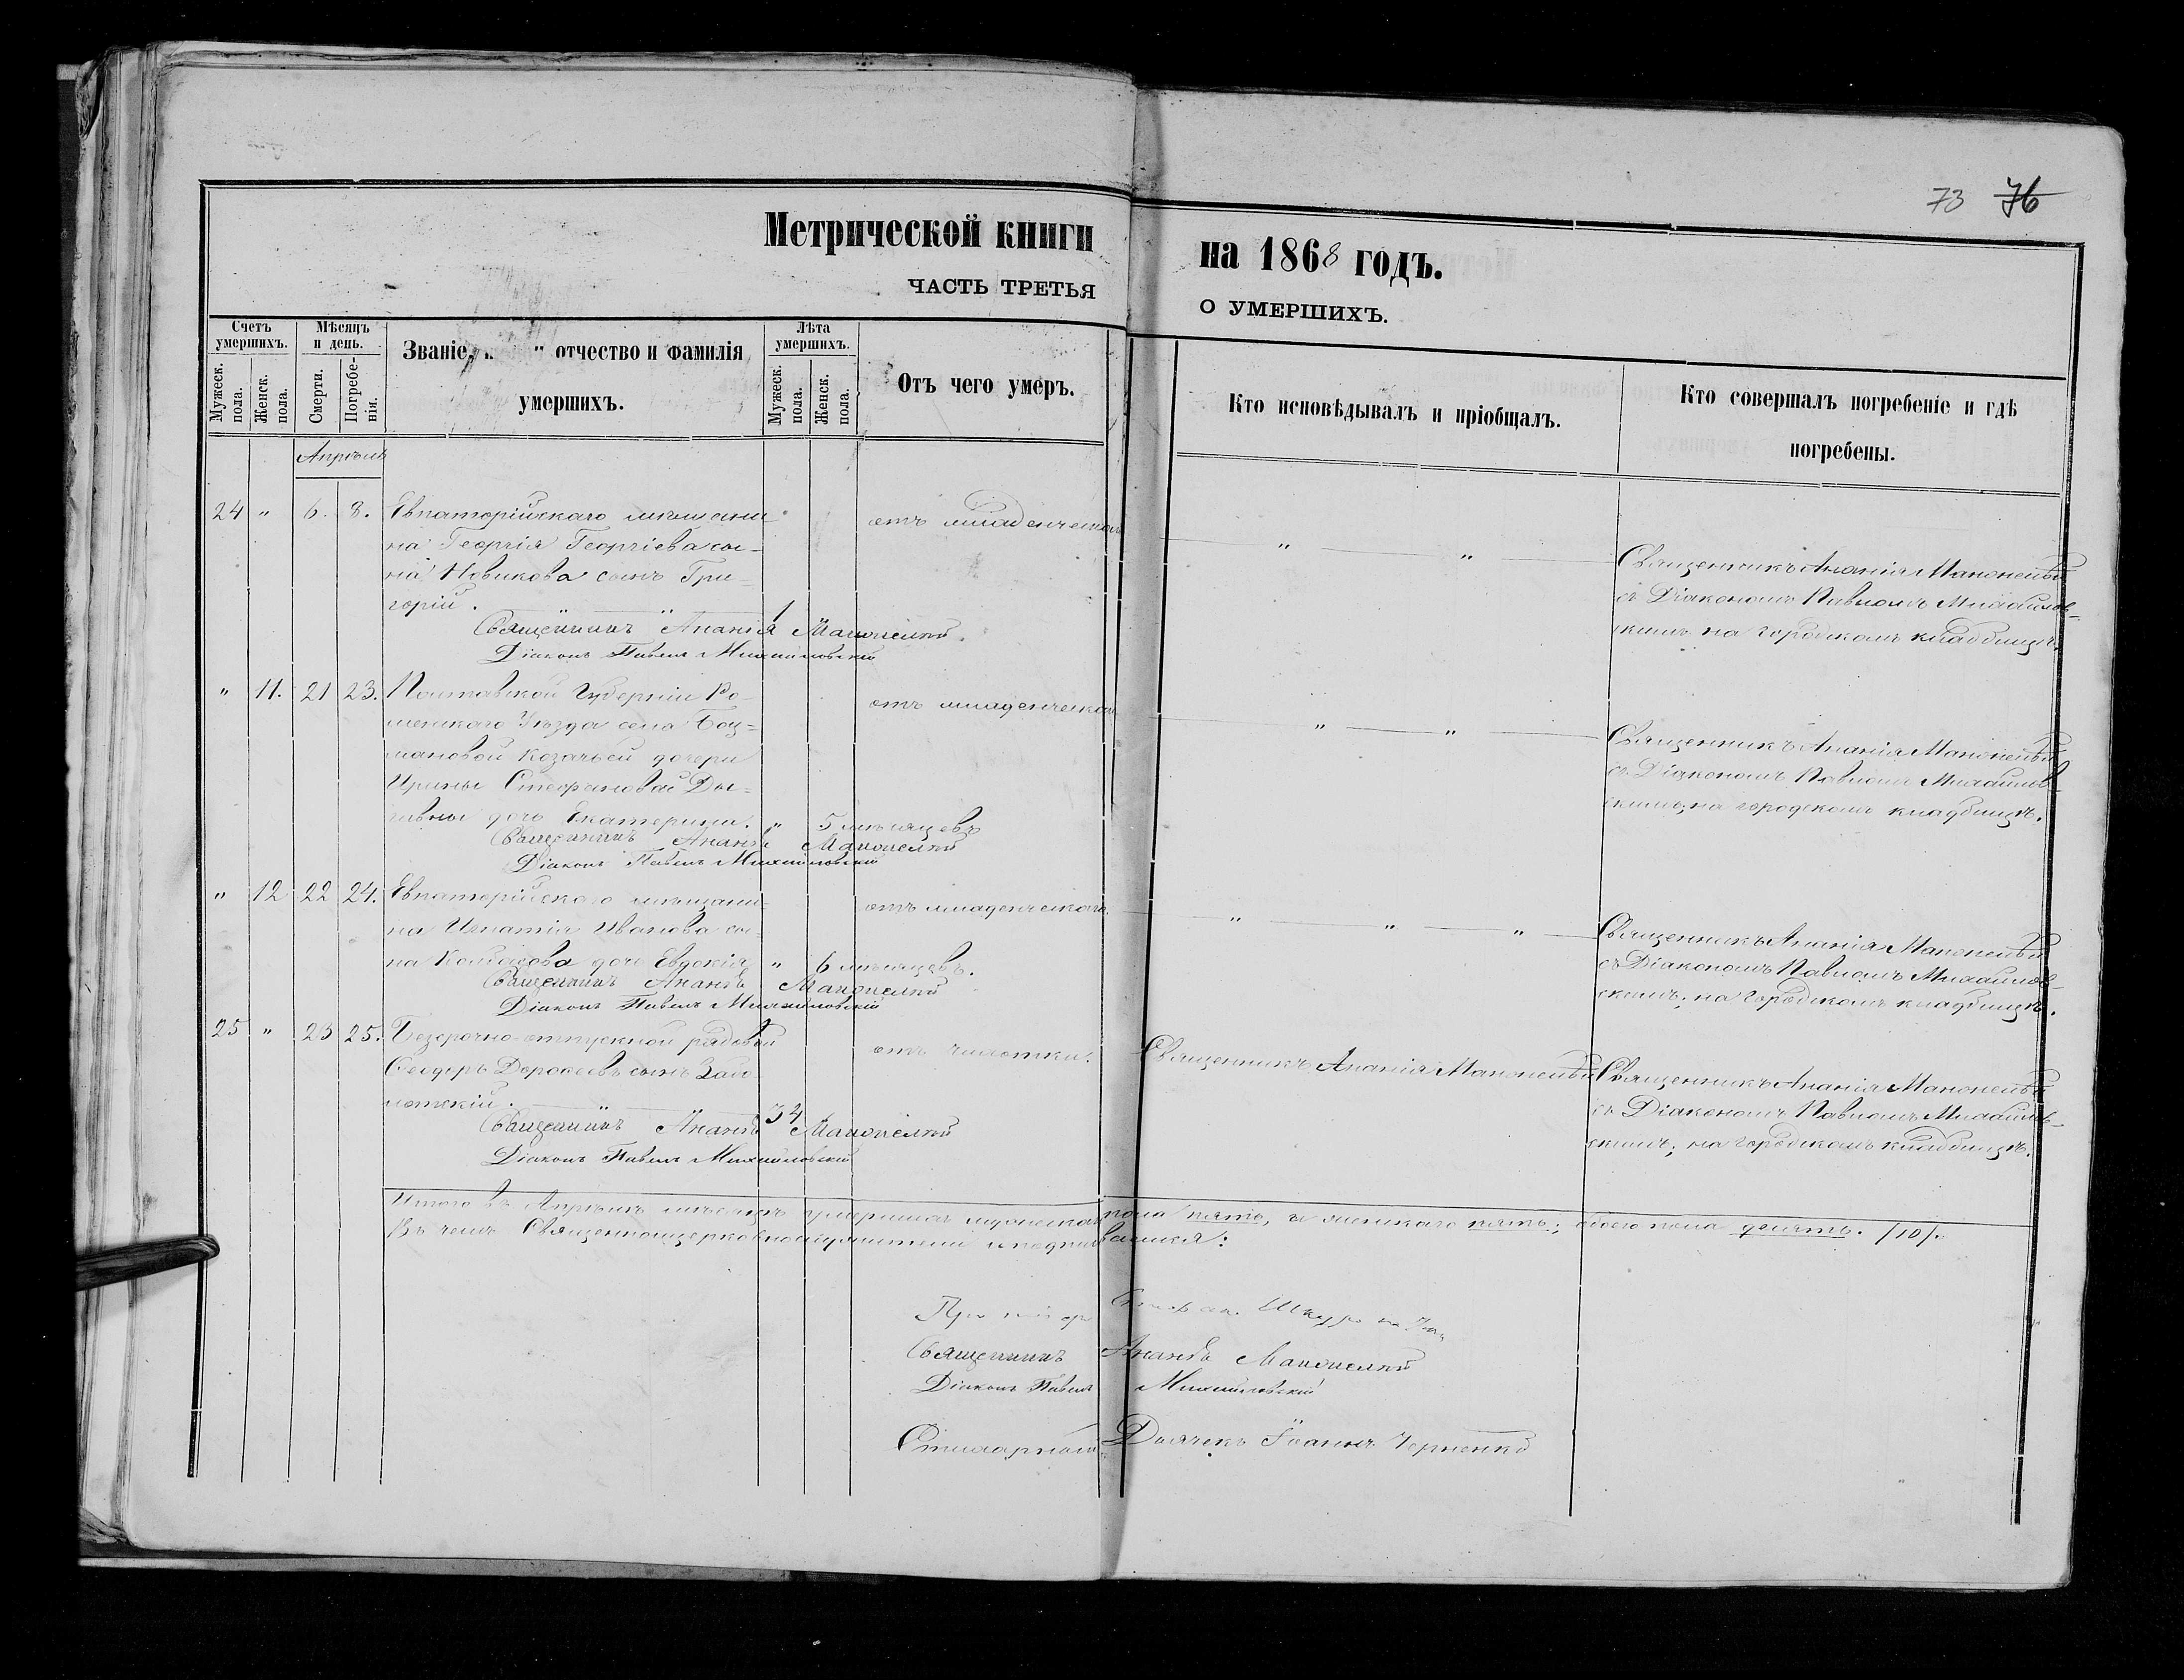 73 76
Метрической книги на 1868 годъ.
ЧАСТЬ ТРЕТЬЯ О УМЕРШИХЪ.
Счетъ умершихъ.
Мужеск. пола.
Женск. пола.
Мѣсяцъ и день.
Смерти.
Погребенія.
Званіе, " " отчество и фамилія
умершихъ.
Лѣта умершихъ.
Мужеск. пола.
Женск. пола.
Отъ чего умеръ.
Кто исповѣдывалъ и пріобщалъ.
Кто совершалъ погребеніе и гдѣ
погребены.
Апрѣль
24 " 6. 8. Евпаторійскаго мѣщани-
на Георгія Георгіева сы-
на Новикова сынъ Гри-
горій. 1
отъ младенческой
" "
Священникъ Ананія
съ Діакономъ Павломъ Михайлов-
скимъ на городскомъ кладбищѣ.
Священникъ Ананія
Діаконъ Павелъ Михайловскій
" 11. 21 23. Полтавской Губерніи Ро-
менскаго Уѣзда села
козачьей дочери
Ирины Стефановой
дочь Екатерина. " 5 мѣсяцевъ
отъ младенческой
" "
Священникъ Ананія
съ Діакономъ Павломъ Михайлов-
скимъ; на городскомъ кладбищѣ.
Священникъ Ананія
Діаконъ Павелъ Михайловскій
" 12 22 24. Евпаторійскаго мѣщани-
на Игнатія Иванова сы-
на дочь Евдокія " 6 мѣсяцевъ.
отъ младенческаго.
" " "
Священникъ Ананія
съ Діакономъ Павломъ Михайлов-
скимъ; на городскомъ кладбищѣ.
Священникъ Ананія
Діаконъ Павелъ Михайловскій
25 " 23 25. Безсрочно-отпускной рядовой
Феодоръ Дорофеевъ сынъ Забо-
лотскій. 34
отъ чахотки.
Священникъ Ананія
Священникъ Ананія
съ Діакономъ Павломъ Михайлов-
скимъ; на городскомъ кладбищѣ.
Священникъ Ананія
Діаконъ Павелъ Михайловскій
Итого въ Апрѣлѣ мѣсяцѣ умершихъ мужескаго пола пять, а женскаго пять; обоего пола десять. /10/.
Въ чемъ Священноцерковнослужители и подписались:
Священникъ Ананія
Діаконъ Павелъ Михайловскій
Дьячекъ Іоаннъ Черненко